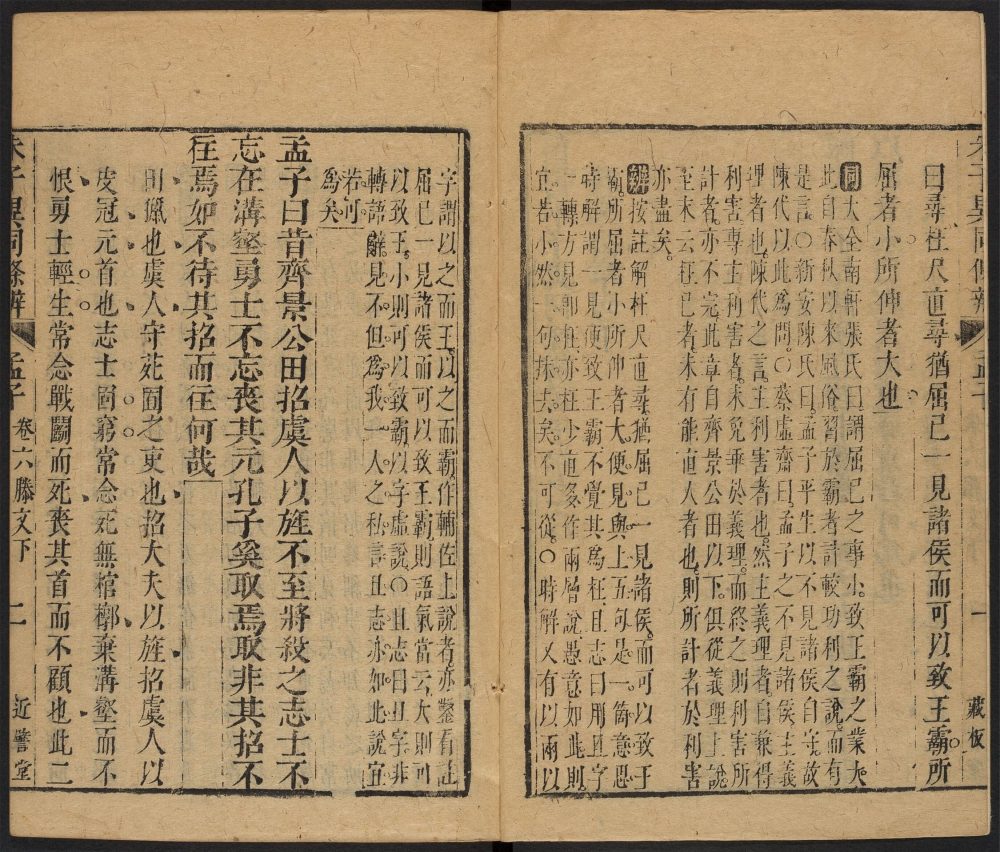 朱子異同條辨 孟子 一 藏板
曰尋枉尺直尋猶屈己一見諸侯而可以致王霸所
屈者小所伸者大也
同大全南軒張氏曰謂屈己之事小致王霸之業大
此自春秋以來風俗習於霸者計較功利之說而有
是言○新安陳氏曰孟子平生以不見諸侯自守故
陳代以此為問○蔡虛齋曰孟子之不見諸侯主義
理者也陳代之言主利害者也然主義理者自兼得
利害專主利害者未免乖於義理而終之則利害所
計者亦不完此章自齊景公田以下俱從義理上說
至末云枉己者未有能直人者也則所計者於利害
亦盡矣
辨按註解枉尺直尋猶屈己一見諸侯而可以致于
霸所屈者小所伸者大便見與上五句是一箇意思
時解謂一見便致王霸不覺其為枉且志曰用且字
一轉方見卽枉亦枉少直多作兩層說愚意如此則
宜若小然一句抹去矣不可從○時解又有以兩以
字謂以之而王以之而霸作輔佐上說者亦鑿看註
屈己一見諸侯而可以致王霸則語氣當云大則可
以致王小則可以致霸以字虛說○且志曰且字非
轉語辭見不但為我一人之私言且志亦如此說宜
若可
為矣
孟子曰昔齊景公田招虞人以旌不至將殺之志士不
忘在溝壑勇士不忘喪其元孔子奚取焉取非其招不
往焉如不待其招而往何哉
田獵也虞人守苑囿之吏也招大夫以旌招虞人以
皮冠元首也志士固窮常念死無棺槨棄溝壑而不
恨勇士輕生常念戰鬭而死喪其首而不顧也此二
朱子異同條辨 孟子 卷六滕文下 二 近譬堂